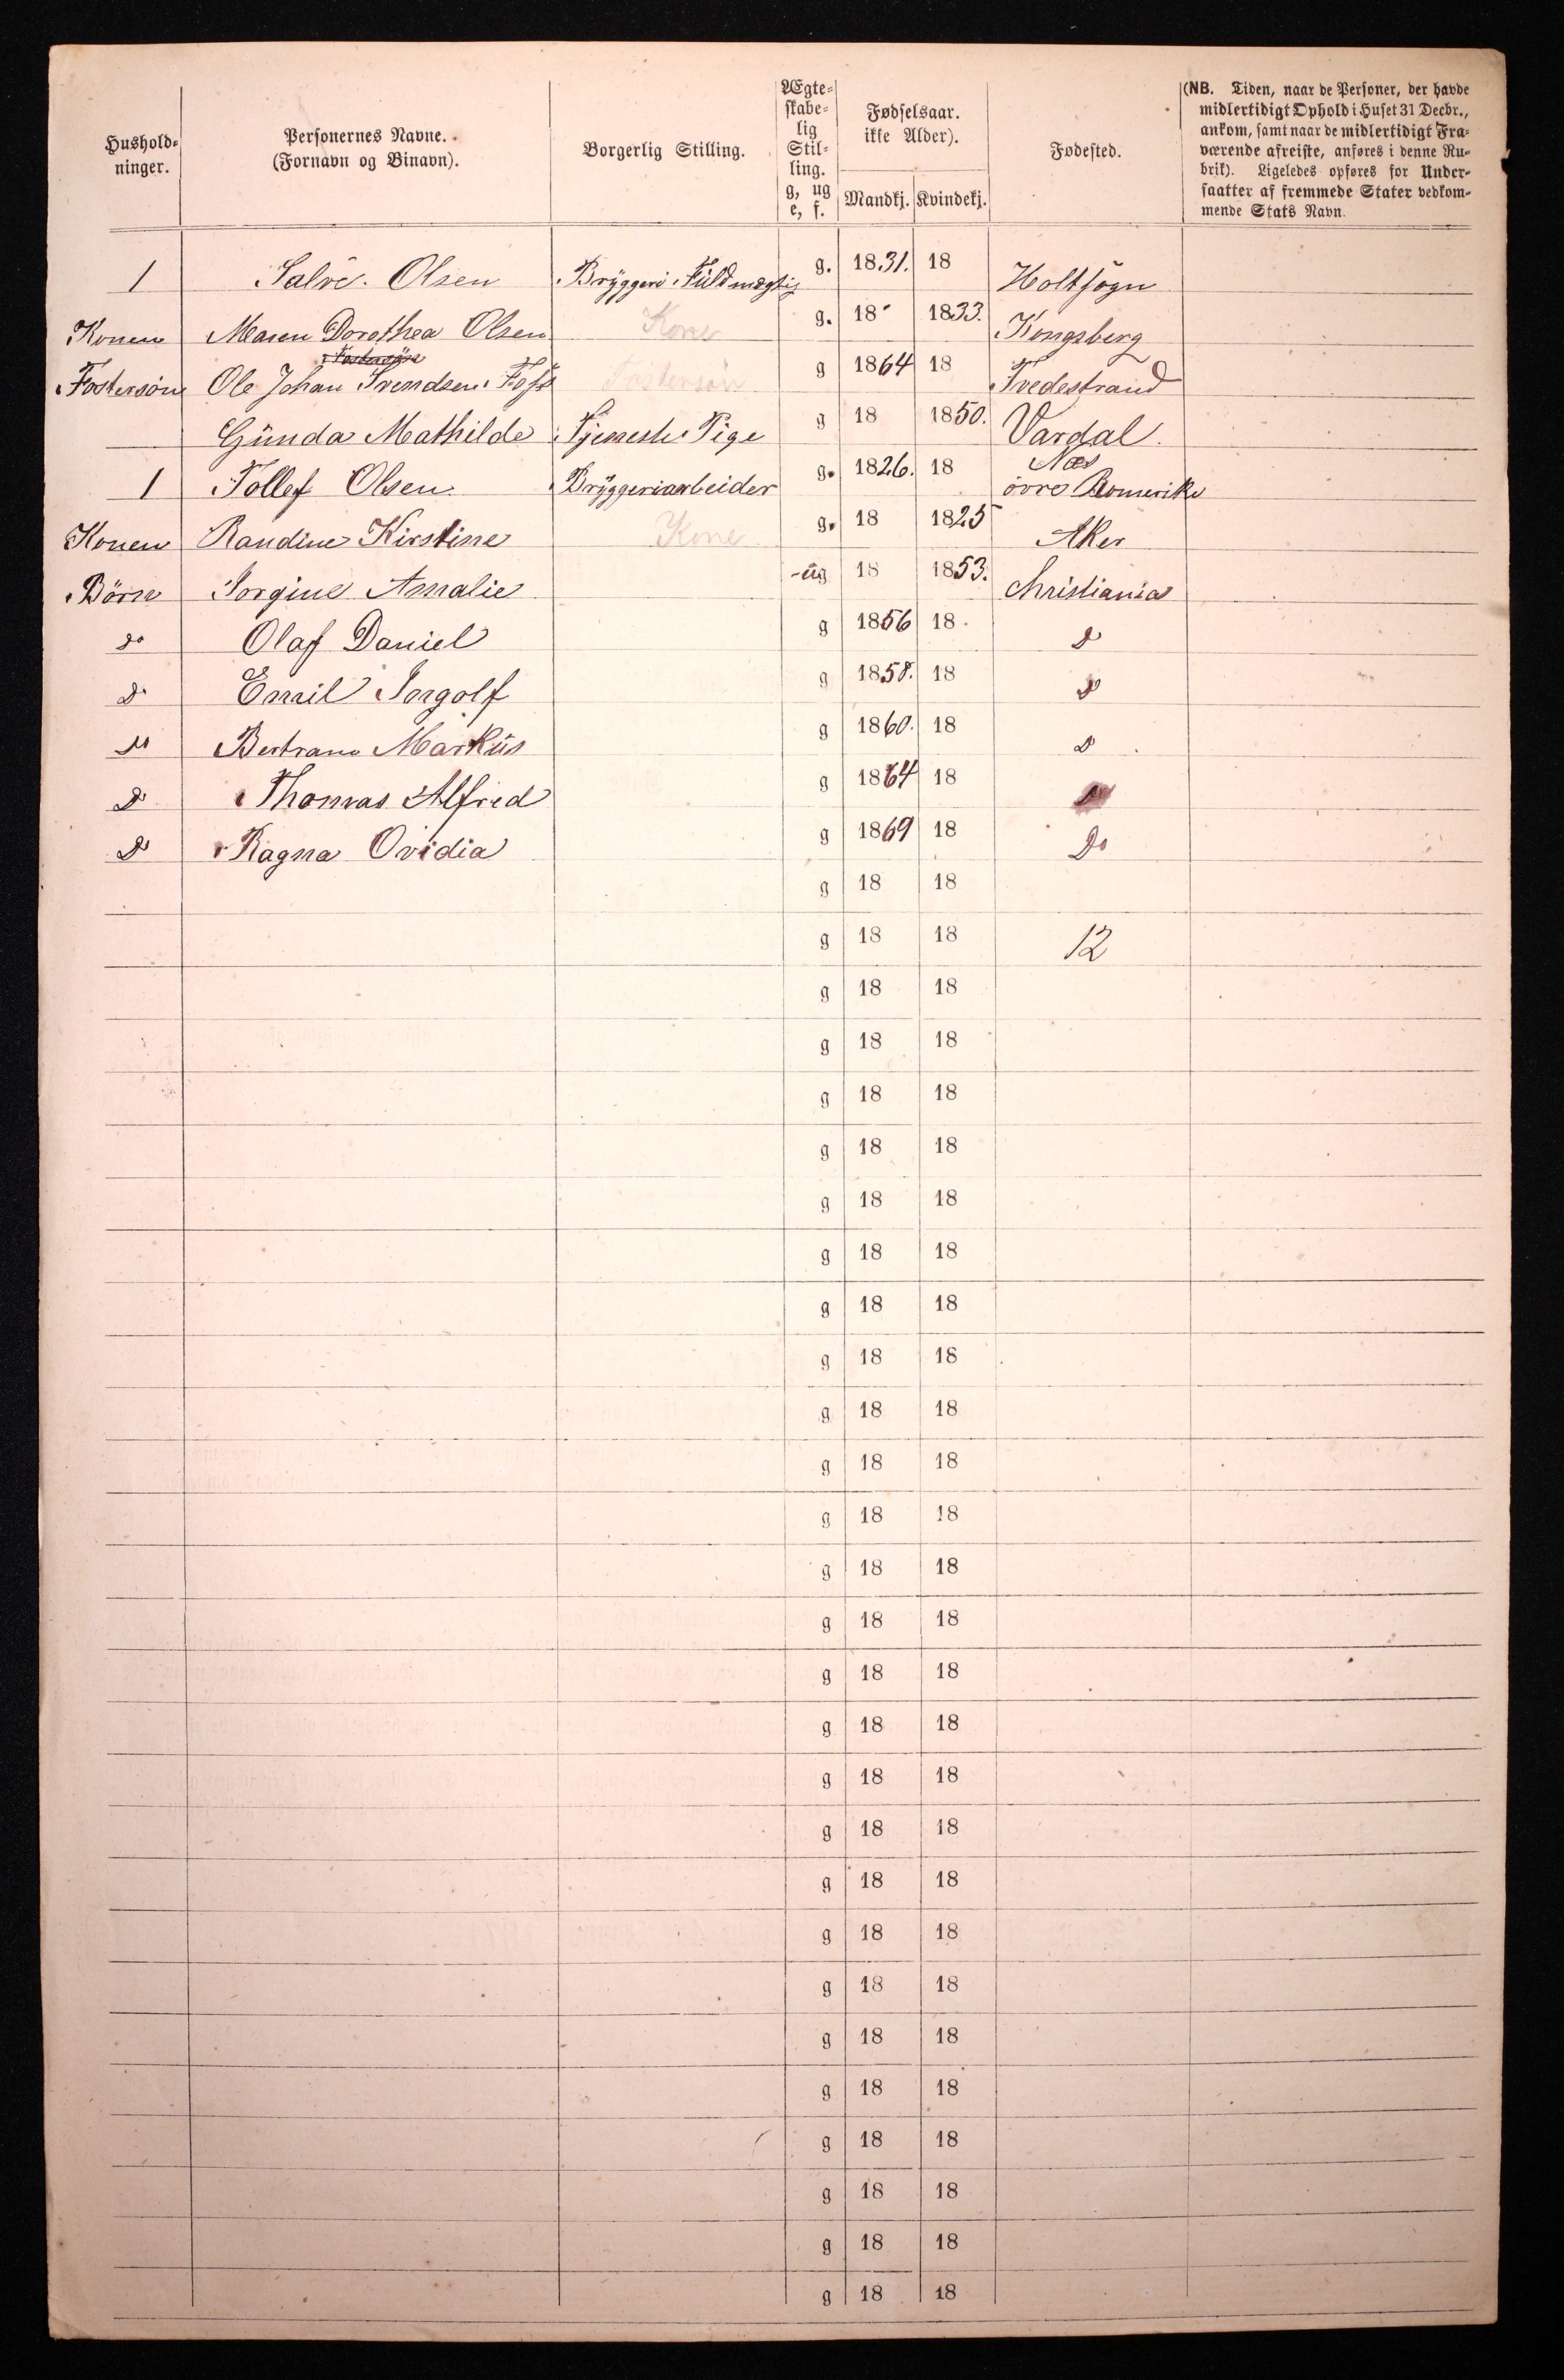 Hushold-
ninger.
Personernes Navne.
(Fornavn og Binavn).
Borgerlig Stilling.
Ægte-
skabe-
lig
Stil-
ling.
g, ug
e, f.
Fødselsaar.
ikke Alder).
Mandkj. Kvindekj.
Fødested.
(NB. Tiden, naar de Personer, der havde
midlertidigt Ophold i Huset 31 Decbr.,
ankom, samt naar de midlertidigt Fra-
værende afreiste, anføres i denne Ru-
brik). Ligeledes opføres for Under-
saatter af fremmede Stater vedkom-
mende Stats Navn.
1 Salve. Olsen Bryggeri Fuldmægtig g. 1831. 18 Holtsogn
Konen Maren Dorothea Olsen Kone g. 18 1833. Kongsberg
Fostersön
Fostersön Ole Johan Svendsen Foss Fostersön g 1864 18 Tvedestrand
Gunda Mathilde Tjeneste Pige g 18 1850. Vardal.
Nes
1 Tollef Olsen. Bryggeriarbeider g. 1826. 18 övre Romerike
Konen Randine Kirstine Kone g. 18 1825 Aker
Börn Jorgine Amalie ug 18 1853. Christiania
do Olaf Daniel g 1856 18 D
D Emil Ingolf g 1858. 18 D
do Bertram Markus g 1860. 18 D
D Thomas Alfred g 1864 18 D
D Ragna Ovidia g 1869 18 Do
g 18 18
g 18 18 12
g 18 18
g 18 18
g 18 18
g 18 18
g 18 18
g 18 18
g 18 18
g 18 18
g 18 18
g 18 18
g 18 18
g 18 18
g 18 18
g 18 18
g 18 18
g 18 18
g 18 18
g 18 18
g 18 18
g 18 18
g 18 18
g 18 18
g 18 18
g 18 18
g 18 18
g 18 18